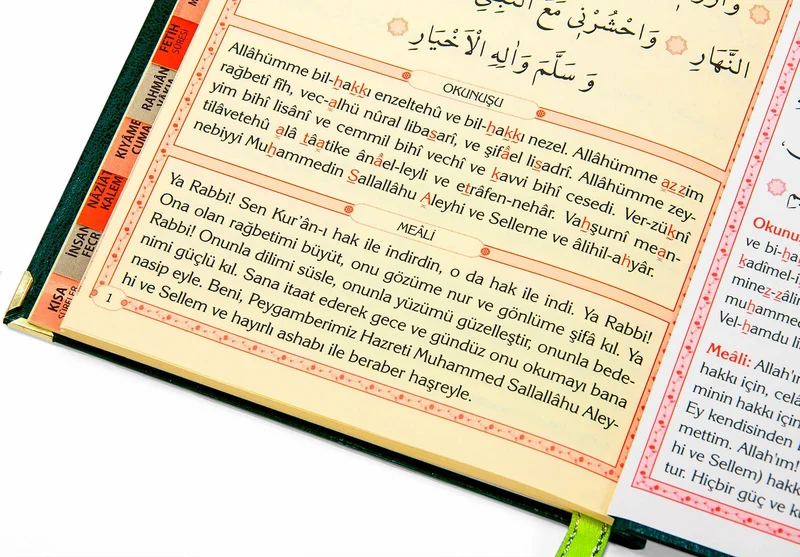 النَّهَارِ وَاحْشُرْنِي مَعَ النَّبِيِّ
وَ سَلَّمَ وَاٰلِهِ الْاَخْيَارِ
OKUNUŞU
Allâhümme bil-hakkı enzeltehû ve bil-hakkı nezel. Allâhümme azzim
rağbetî fîh, vec-alhü nûral libasarî, ve şifâel lisadrî. Allâhümme zey-
yim bihî lisânî ve cemmil bihî vechî ve kawi bihî cesedî. Ver-zuknî
tilâvetehû alâ tâatike ânâel-leyli ve etrâfen-nehâr. Vahşurnî mean-
nebiyyi Muhammedin Sallallâhu Aleyhi ve Selleme ve âlihil-ahyâr.
MEÂLİ
Ya Rabbi! Sen Kur'ân-ı hak ile indirdin, o da hak ile indi. Ya Rabbi!
Ona olan rağbetimi büyüt, onu gözüme nur ve gönlüme şifâ kıl. Ya
Rabbi! Onunla dilimi süsle, onunla yüzümü güzelleştir, onunla bede-
nimi güçlü kıl. Sana itaat ederek gece ve gündüz onu okumayı bana
nasip eyle. Beni, Peygamberimiz Hazreti Muhammed Sallallâhu Aley-
hi ve Sellem ve hayırlı ashabı ile beraber haşreyle.
1
FETİH
SÛRESİ
RAHMÂN
VÂKIA
KIYÂME
CUMA
NÂZİAT
KALEM
İNSAN
FECR
KISA
SÛRELER
Okunu
ve bi-ha
kadîmel-i
minez-zâli
muhamme
Vel-hamdu li
Meâli: Allah'ım
hakkı için, celâ
minin hakkı için
Ey kendisinden
mettim. Allah'ım!
hi ve Sellem) hakk
tur. Hiçbir güç ve k